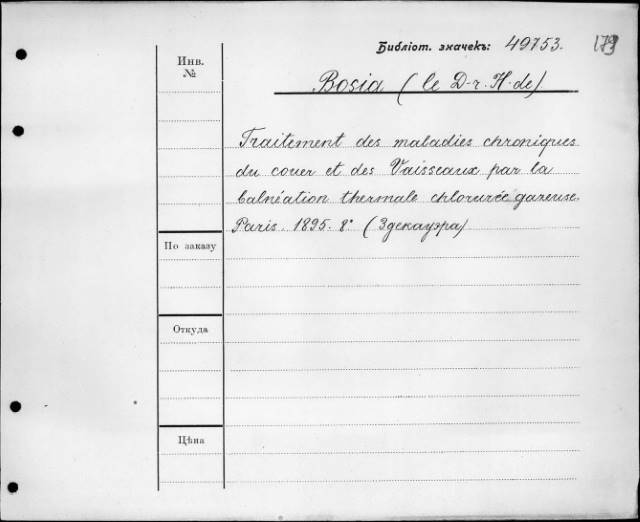 Библіот. значекъ: 49753.
179
Инв.
№
Bosia (le D-r. H. de)
Traitement des maladies chroniques
du couer et des Vaisseaux par la
balnéation thermale chlorurée gazeuse.
Paris. 1895. 8° (Здекауэра)
По заказу
Откуда
Цѣна